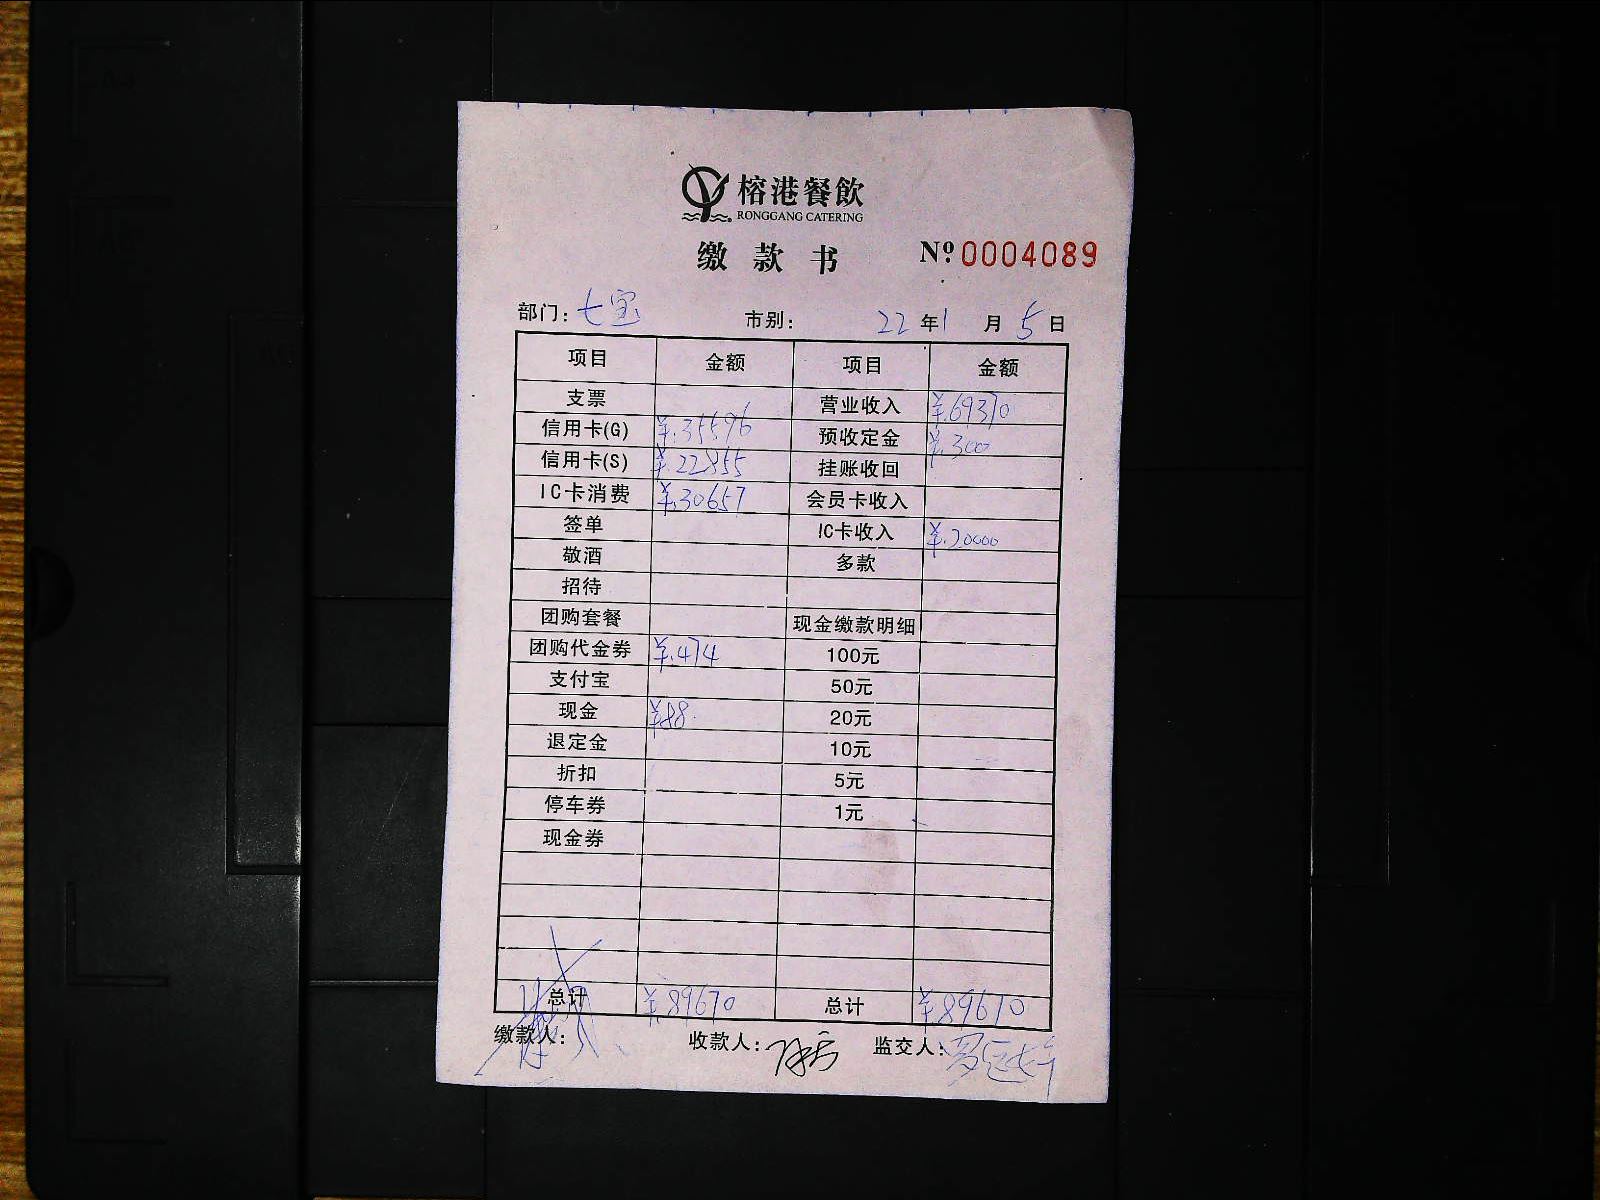 榕港餐飲
RONGGANG CATERING
缴款书 Nº: 0004089
部门: 七宝 市别: 22年1月5日
项目 金额 项目 金额
支票 营业收入 ¥.69370
信用卡(G) ¥.35596 预收定金 ¥.300
信用卡(S) ¥.22855 挂账收回
IC卡消费 ¥.30657 会员卡收入
签单 IC卡收入 ¥.20000
敬酒 多款
招待
团购套餐 现金缴款明细
团购代金券 ¥.474 100元
支付宝 50元
现金 ¥88. 20元
退定金 10元
折扣 5元
停车券 1元
现金券
总计 ¥.89670 总计 ¥89670
缴款人: 收款人: 监交人: